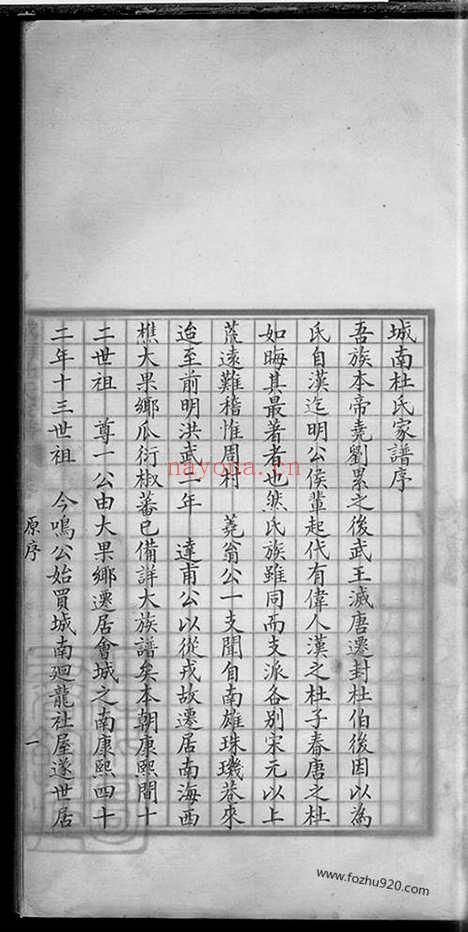 城南杜氏家譜序
吾族本帝堯劉累之後武王滅唐遷封杜伯後因以為
氏自漢迄明公侯輩起代有偉人漢之杜子春唐之杜
如晦其最著者也然氏族雖同而支派各別宋元以上
荒遠難稽惟周村 蕘翁公一支聞自南雄珠璣巷來
迨至前明洪武二年 達甫公以從戎故遷居南海西
樵大果鄉瓜衍椒蕃已備詳大族譜矣本朝康熙間十
二世祖 尊一公由大果鄉遷居會城之南康熙四十
二年十三世祖 今鳴公始買城南廻龍社屋遂世居
原序
一
nayona.cn
www.fozhu920.com